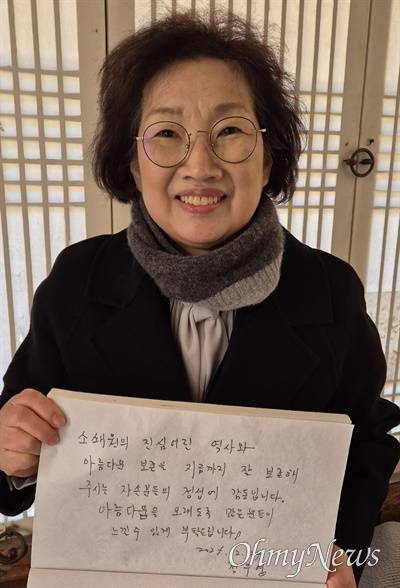 소쇄원의 진심어린 역사와
아름다움 보존을 지금까지 잘 보존해
주시는 자손분들의 정성에 감동입니다.
아름다움을 오래도록 많은분들이
느낄수 있게 부탁드립니다!
2024
OhmyNews